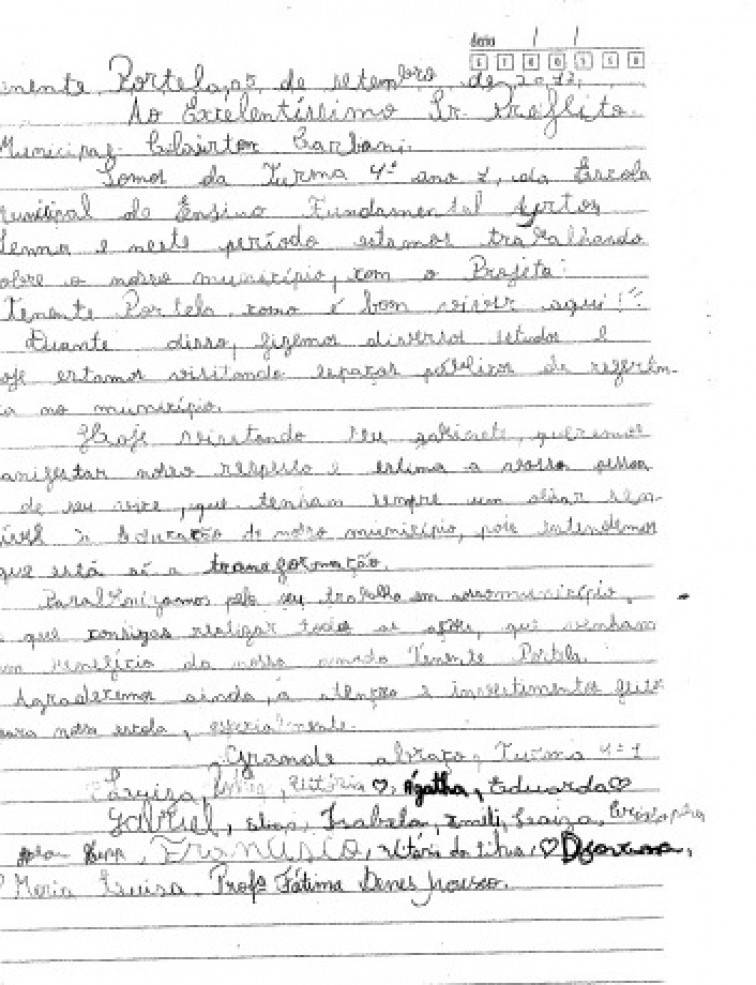 data / /
S T Q Q S S D
nente Portela, 05, de setembro de 2017.
Ao Excelentíssimo Sr. Prefeito
Municipal Clairton Carboni.
Somos da Turma 4º ano 1, da Escola
unicipal de Ensino Fundamental Ayrton
Senna e neste período estamos trabalhando
sobre o nosso município, com o Projeto:
Tenente Portela como é bom viver aqui!"
Duante disso, fizemos diversos estudos e
oje estamos visitando espaços públicos de referên-
cia no município.
Hoje visitando seu gabinete, queremos
anifestar nosso respeito e estima a vossa pessoa
de seu vice, que tenham sempre um olhar sen-
sível à Educação de nosso município, pois entendemos
que está aí a transformação.
Parabenizamos pelo seu trabalho em nosso município,
e que consigas realizar todas as ações, que venham
em benefício do nosso amado Tenente Portela.
Agradecemos ainda, a atenção e investimentos feitos
para nossa escola, especialmente.
Grande abraço, Turma 4º 1
Vitória ♡, Ágatha, Eduarda ♡
Gabriel, Isabela, Emili,
Francisco, ♡
Maria Luisa. Profª Fátima